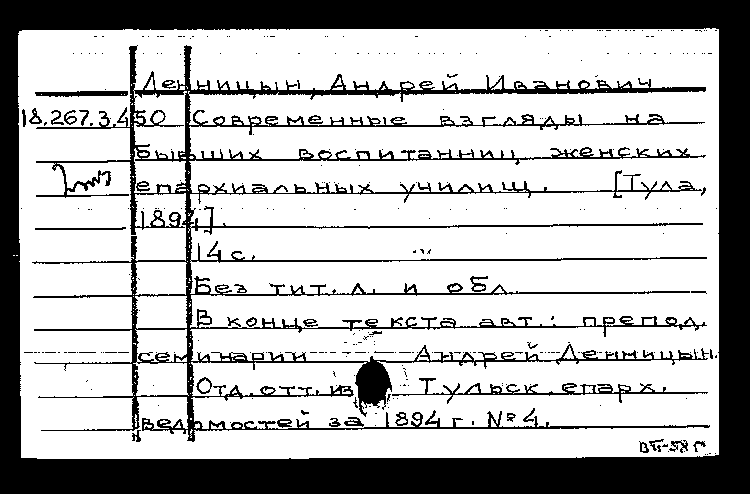 Денницын, Андрей Иванович
18.267.3.450 Современные взгляды на
бывших воспитанниц женских
епархиальных училищ. [Тула,
1894].
14 с.
Без тит. л. и обл.
В конце текста авт.: препод.
семинарии Андрей Денницын.
Отд. отт. из Тульск. епарх.
ведомостей за 1894 г. № 4.